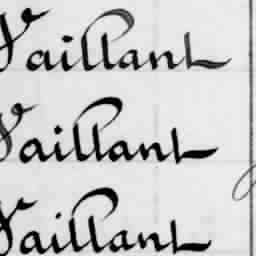 Vaillant
Vaillant
Vaillant